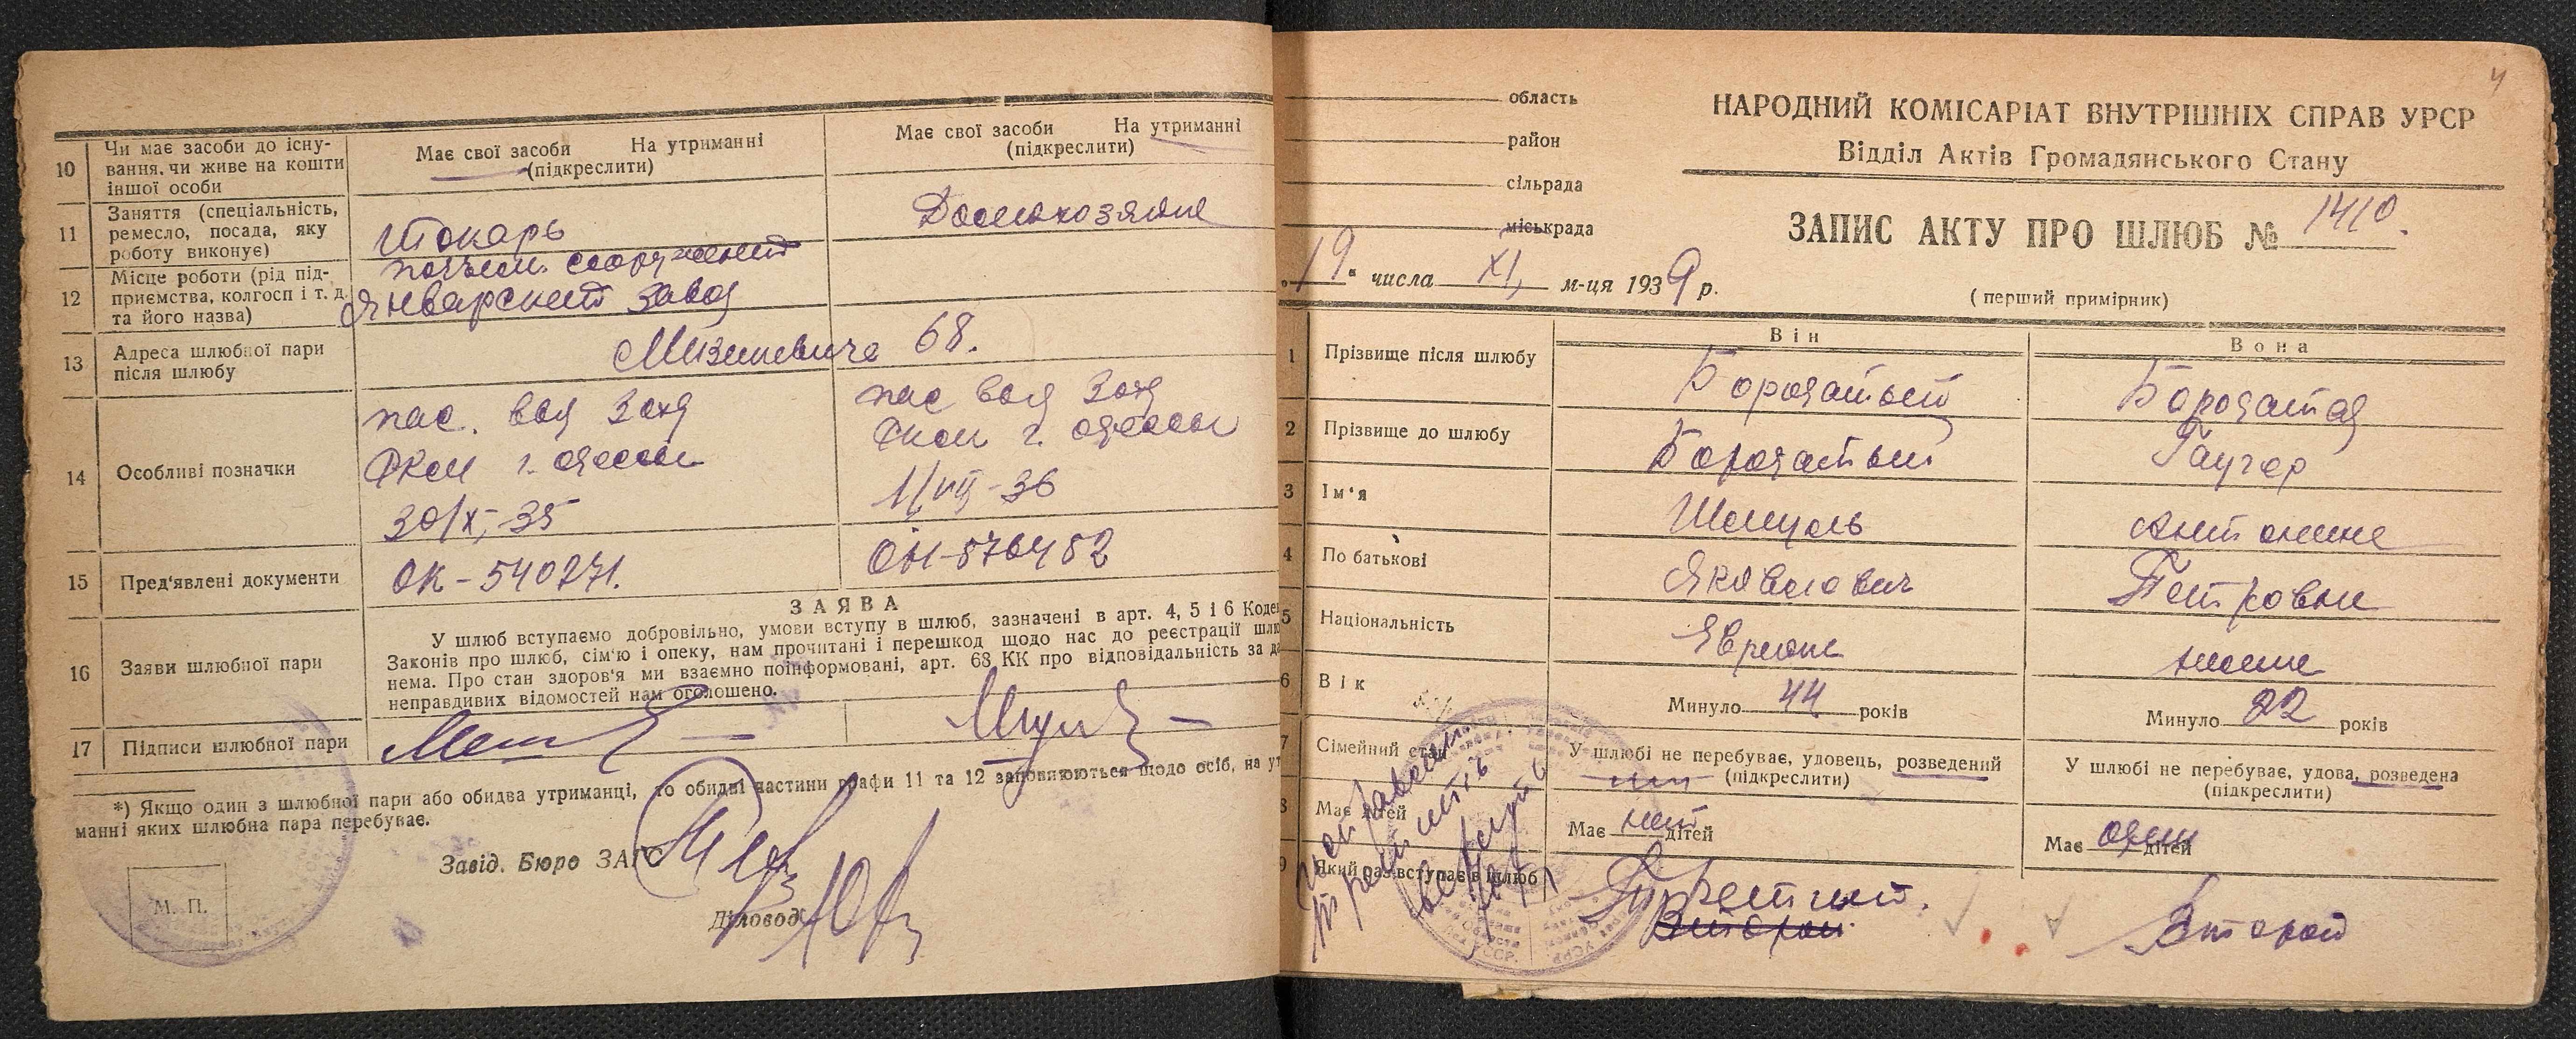 10 Чи має засоби до існу-
вання, чи живе на кошти
іншої особи
Має свої засоби На утриманні
(підкреслити)
Має свої засоби На утриманні
(підкреслити)
11 Заняття (спеціальність,
ремесло, посада, яку
роботу виконує)
Токарь
Домохозяйка
12 Місце роботи (рід під-
приємства, колгосп і т. д.
та його назва)
Январский завод
13 Адреса шлюбної пари
після шлюбу
Мизикевича 68.
14 Особливі позначки
пас. выд 3 отд
РКМ г. Одессы
30/XI-35
пас выд 3 отд
РКМ г. Одессы
15 Пред'явлені документи
ОК-540271.
16 Заяви шлюбної пари
ЗАЯВА
У шлюб вступаємо добровільно, умови вступу в шлюб, зазначені в арт. 4, 5 і 6 Коде
Законів про шлюб, сім'ю і опеку, нам прочитані і перешкод щодо нас до реєстрації шлю
нема. Про стан здоров'я ми взаємно поінформовані, арт. 68 КК про відповідальність за да
неправдивих відомостей нам оголошено.
17 Підписи шлюбної пари
*) Якщо один з шлюбної пари або обидва утриманці, то обидві частини графи 11 та 12 заповнюються щодо осіб, на ут
манні яких шлюбна пара перебуває.
Завід. Бюро ЗАГС
Діловод
М. П.
4
область
район
сільрада
міськрада
НАРОДНИЙ КОМІСАРІАТ ВНУТРІШНІХ СПРАВ УРСР
Відділ Актів Громадянського Стану
ЗАПИС АКТУ ПРО ШЛЮБ № 1410.
„19" числа XI, м-ця 1939 р.
(перший примірник)
Він
Вона
1 Прізвище після шлюбу Бородатый Бородатая
2 Прізвище до шлюбу Бородатый Гаугер
3 Ім'я Шмуль Антонина
4 По батькові Яковлевич Петровна
5 Національність Евреин немка
6 Вік Минуло 44 років Минуло 22 років
7 Сімейний стан
У шлюбі не перебуває, удовець, розведений
(підкреслити)
У шлюбі не перебуває, удова, розведена
(підкреслити)
8 Має дітей Має нет дітей Має один дітей
9 Який раз вступає в шлюб
Третий.
Второй
Второй